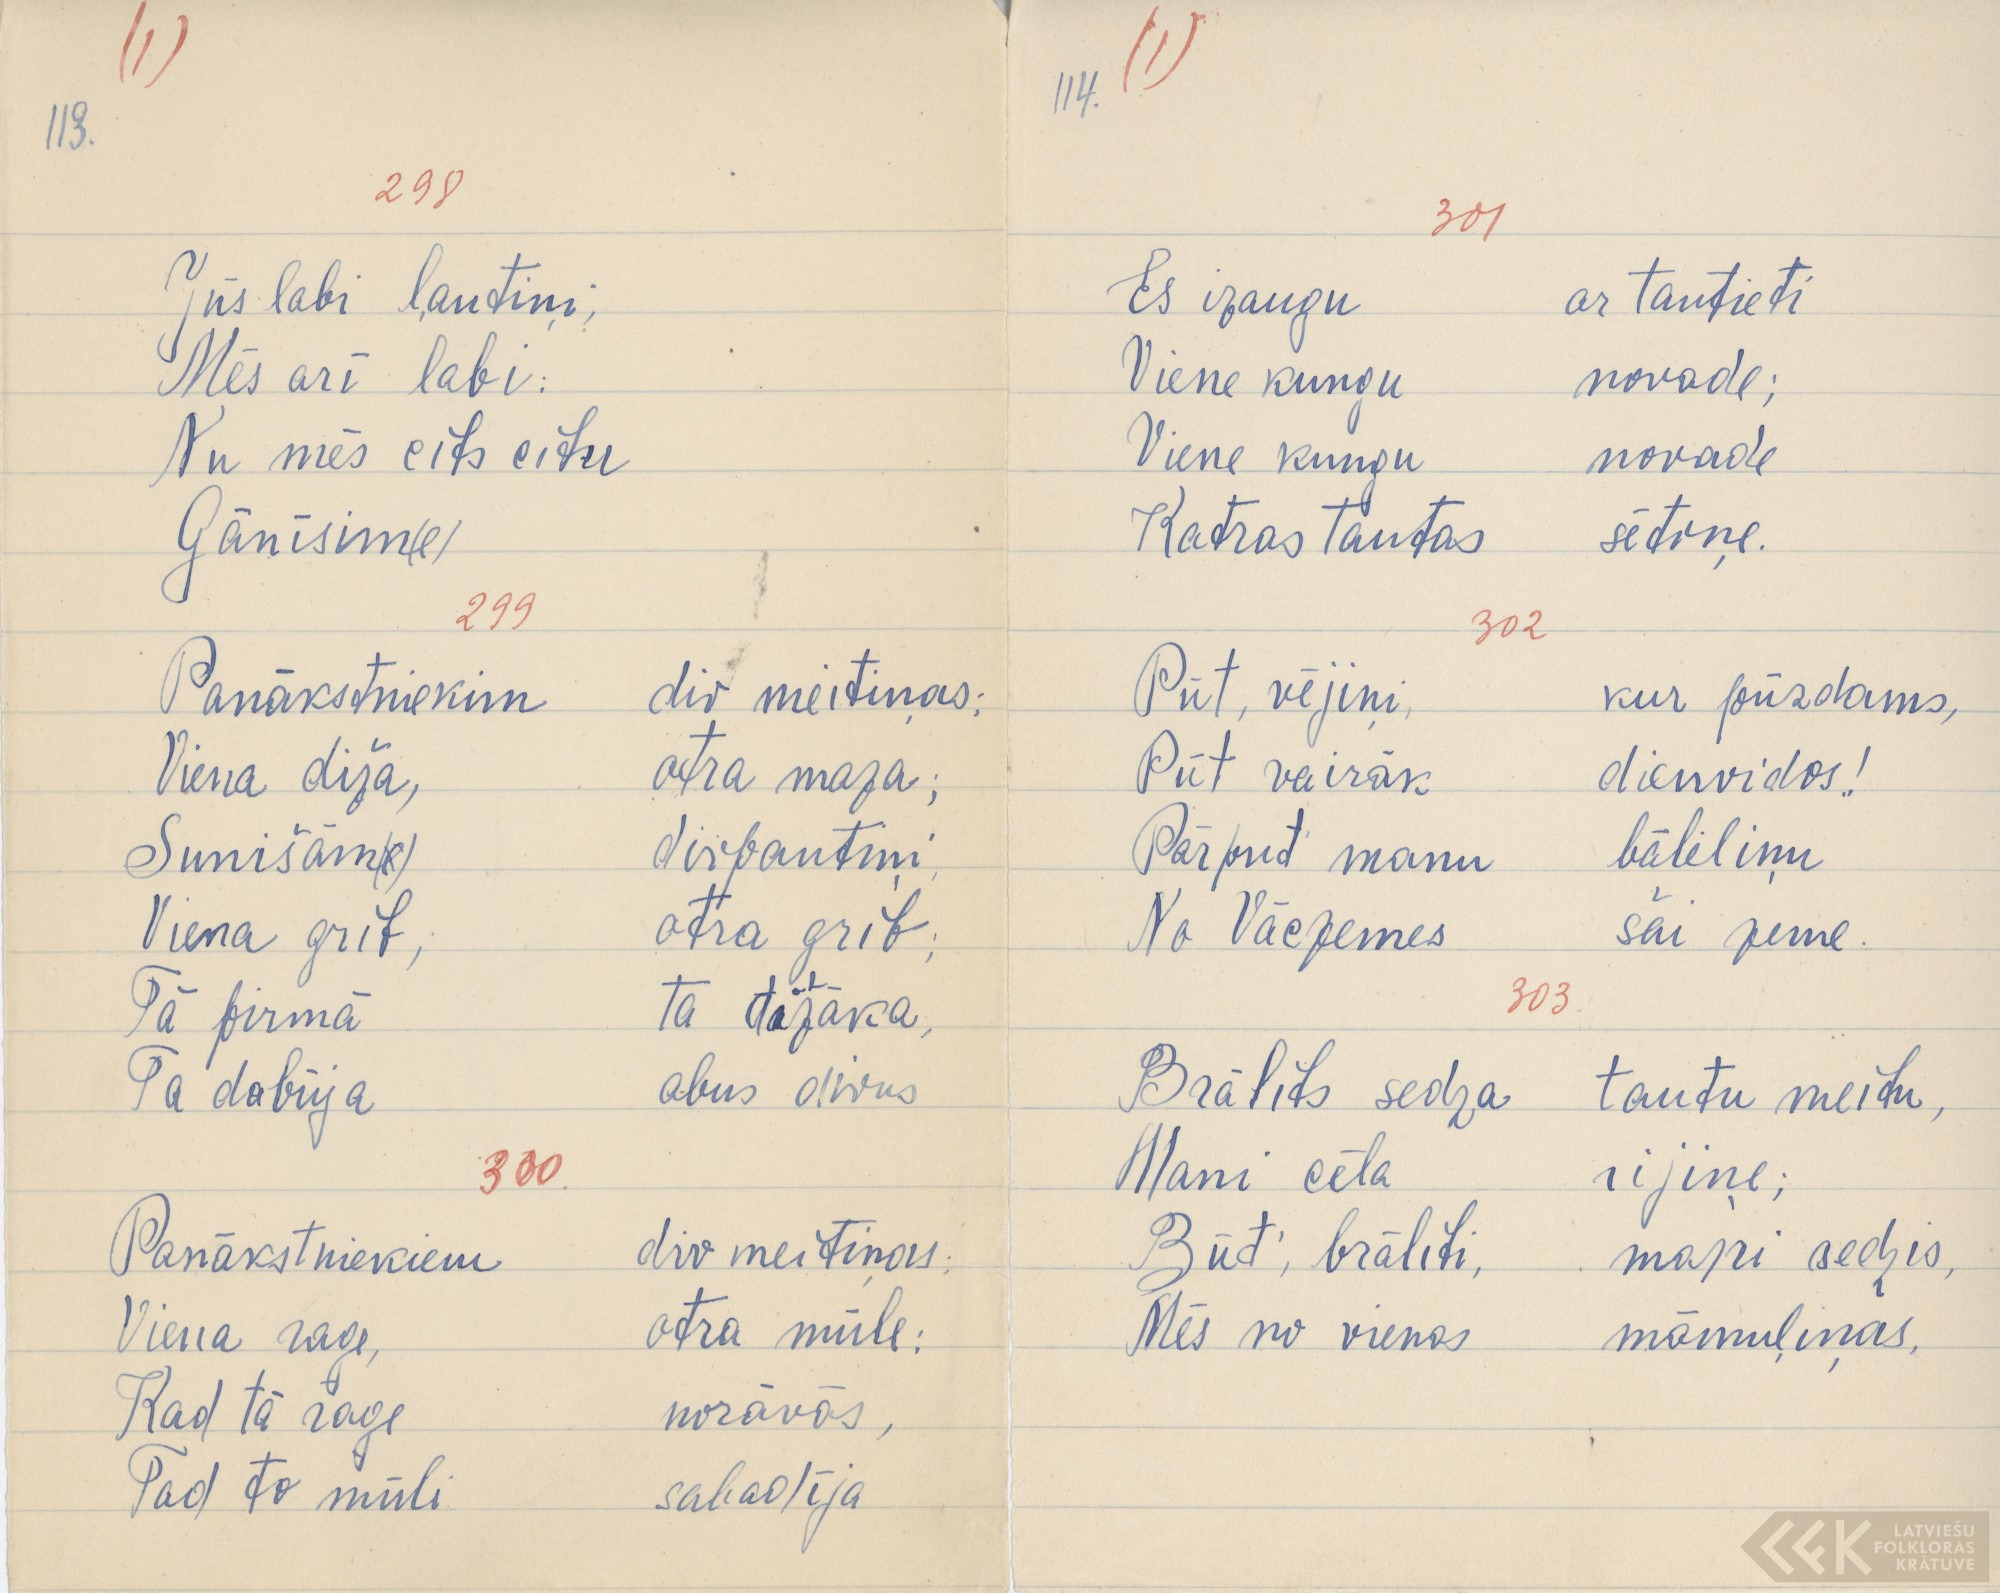 (1)
113.
298
Jūs labi ļautiņi,
Mēs arī labi:
Nu mēs cits citu
Gānīsim(e)
299
Panākstniekim div meitiņas:
Viena diža, otra maza;
Sunišām(e) divpautiņi,
Viena grib, otra grib;
Tā pirmā ta
Ta dabūja abus divus
300.
Panākstniekiem div meitiņas:
Viena rage, otra mūle:
Kad tā rage norāvās,
Tad to mūli sabadīja
114. (1)
301
Es izaugu ar tautieti
Viene kungu novade;
Viene kungu novade
Katras tautas sētiņe.
302
Pūt, vējiņi, kur pūzdams,
Pūt vairāk dienvidos!
Pārput' manu bāleliņu
No Vāczemes šāi zeme.
303.
Brālits sedza tautu meitu,
Mani cēla rijiņe;
Būt', brāliti, mani sedzis,
Mēs no vienas māmuļiņas,
LATVIEŠU
FOLKLORAS
KRĀTUVE